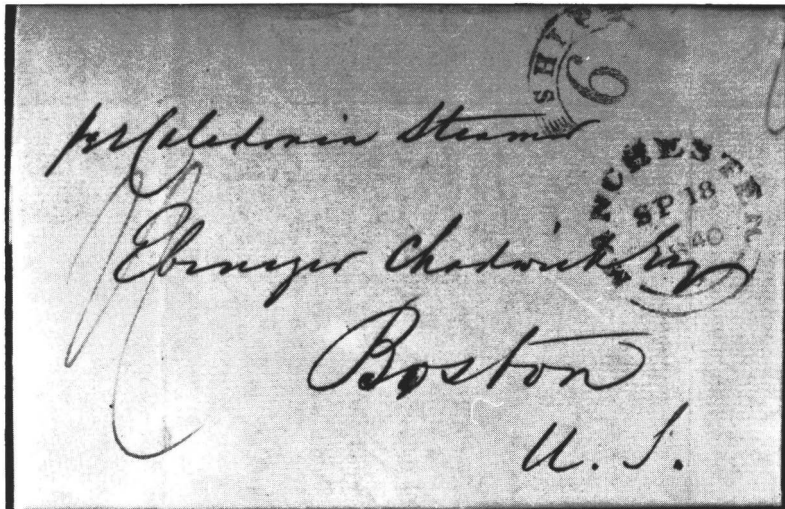 SHIP
6
per Caledonia Steamer
MANCHESTER
SP 18
1840
Ebenezer Chadwick Esq
Boston
U. S.